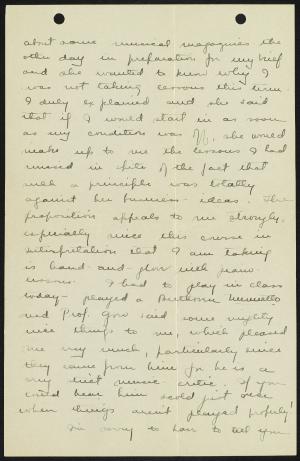 about some musical magazines the
other day in preparation for my brief
and she wanted to know why I
was not taking lessons this term.
I duly explained and she said
that if I would start in as soon
as my condition was off, she would
make up to me the lessons I had
missed in spite of the fact that
such a principle was totally
against her business ideas. The
proposition appeals to me strongly,
especially since this course in
interpretation that I am taking
is hand-and-glove with piano
lessons. I had to play in class
today - played a Beethoven Minuetto
and Prof. Gow said some mighty
nice things to me, which pleased
me very much, particularly since
they came from him for he is a
very strict music critic. If you
could hear him scold just once
when things aren't played properly!
I'm sorry to have to tell you